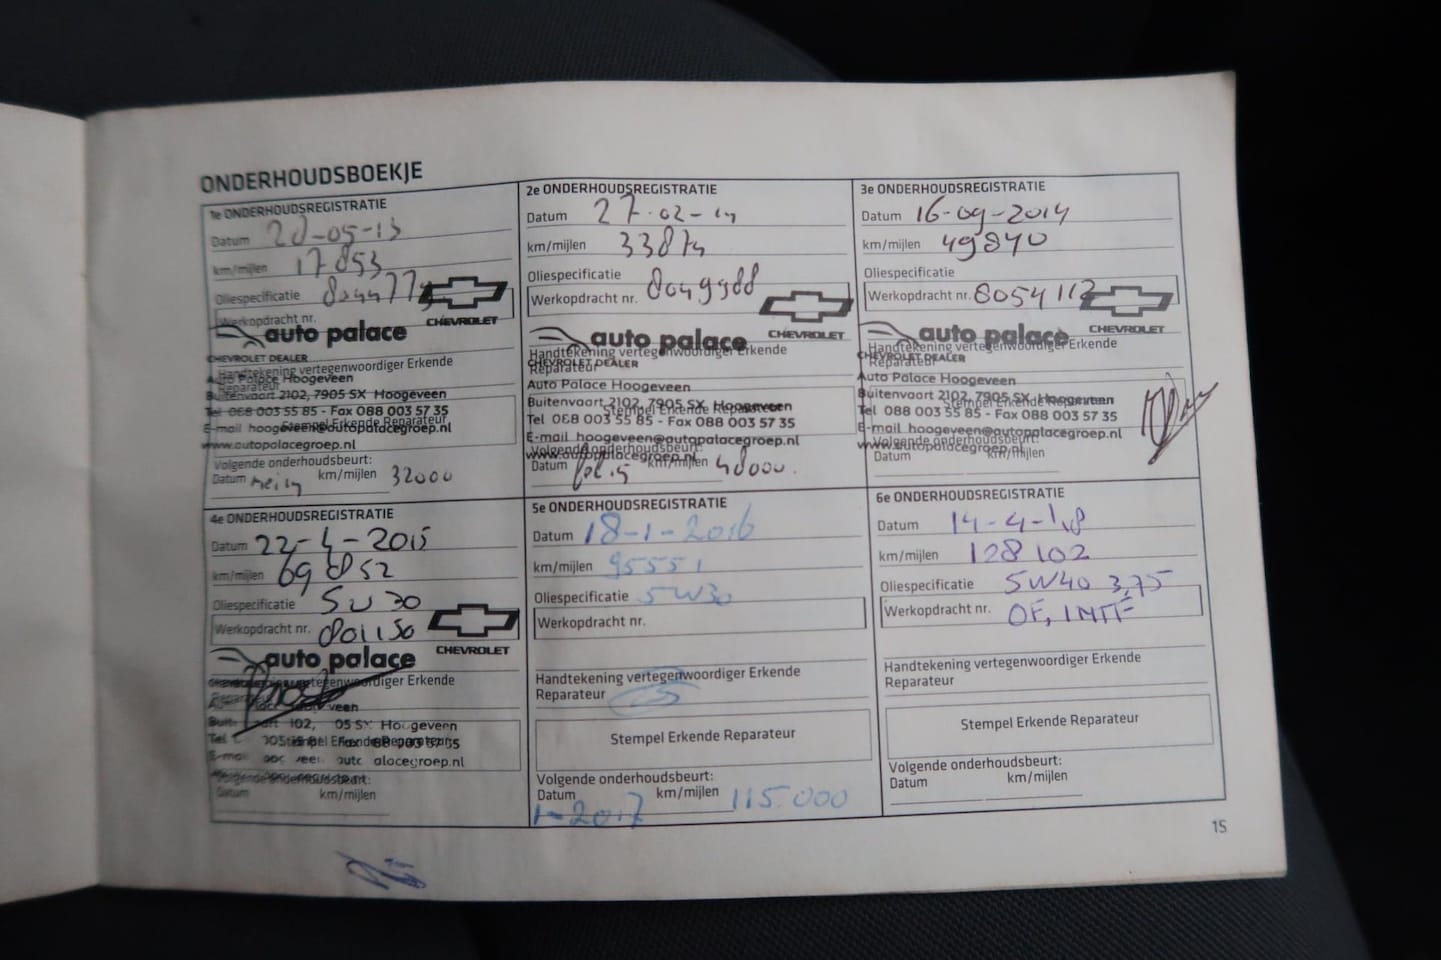 ONDERHOUDSBOEKJE
1e ONDERHOUDSREGISTRATIE
Datum 28-05-13
km/mijlen 17853
Oliespecificatie
Werkopdracht nr.
CHEVROLET
auto palace
CHEVROLET DEALER
Handtekening vertegenwoordiger Erkende
Reparateur
Auto Palace Hoogeveen
Buitenvaart 2102, 7905 SX Hoogeveen
Tel 088 003 55 85 - Fax 088 003 57 35
Stempel Erkende Reparateur
E-mail hoogeveen@autopalacegroep.nl
www.autopalacegroep.nl
Volgende onderhoudsbeurt:
Datum km/mijlen 32000
2e ONDERHOUDSREGISTRATIE
Datum 27-02-14
km/mijlen 33874
Oliespecificatie
Werkopdracht nr. 8049988
CHEVROLET
auto palace
Handtekening vertegenwoordiger Erkende
CHEVROLET DEALER
Reparateur
Auto Palace Hoogeveen
Buitenvaart 2102, 7905 SX Hoogeveen
Stempel Erkende Reparateur
Tel 088 003 55 85 - Fax 088 003 57 35
E-mail hoogeveen@autopalacegroep.nl
Volgende onderhoudsbeurt:
www.autopalacegroep.nl
Datum km/mijlen 48000.
3e ONDERHOUDSREGISTRATIE
Datum 16-09-2014
km/mijlen 49840
Oliespecificatie
Werkopdracht nr. 8054112
CHEVROLET
auto palace
Handtekening vertegenwoordiger Erkende
CHEVROLET DEALER
Reparateur
Auto Palace Hoogeveen
Buitenvaart 2102, 7905 SX Hoogeveen
Stempel Erkende Reparateur
Tel 088 003 55 85 - Fax 088 003 57 35
E-mail hoogeveen@autopalacegroep.nl
Volgende onderhoudsbeurt:
www.autopalacegroep.nl
Datum km/mijlen
4e ONDERHOUDSREGISTRATIE
Datum 22-4-2015
km/mijlen 69852
Oliespecificatie 5W30
Werkopdracht nr. 801156
CHEVROLET
auto palace
vertegenwoordiger Erkende
Reparateur
veen
102, 05 SX Hoogeveen
Tel
Stempel Erkende Reparateur
alacegroep.nl
Volgende onderhoudsbeurt:
Datum km/mijlen
5e ONDERHOUDSREGISTRATIE
Datum 18-1-2016
km/mijlen 95551
Oliespecificatie 5W30
Werkopdracht nr.
Handtekening vertegenwoordiger Erkende
Reparateur
Stempel Erkende Reparateur
Volgende onderhoudsbeurt:
Datum km/mijlen 115.000
1-2017
6e ONDERHOUDSREGISTRATIE
Datum 14-4-18
km/mijlen 128102
Oliespecificatie 5W40 3,75
Werkopdracht nr.
Handtekening vertegenwoordiger Erkende
Reparateur
Stempel Erkende Reparateur
Volgende onderhoudsbeurt:
Datum km/mijlen
15